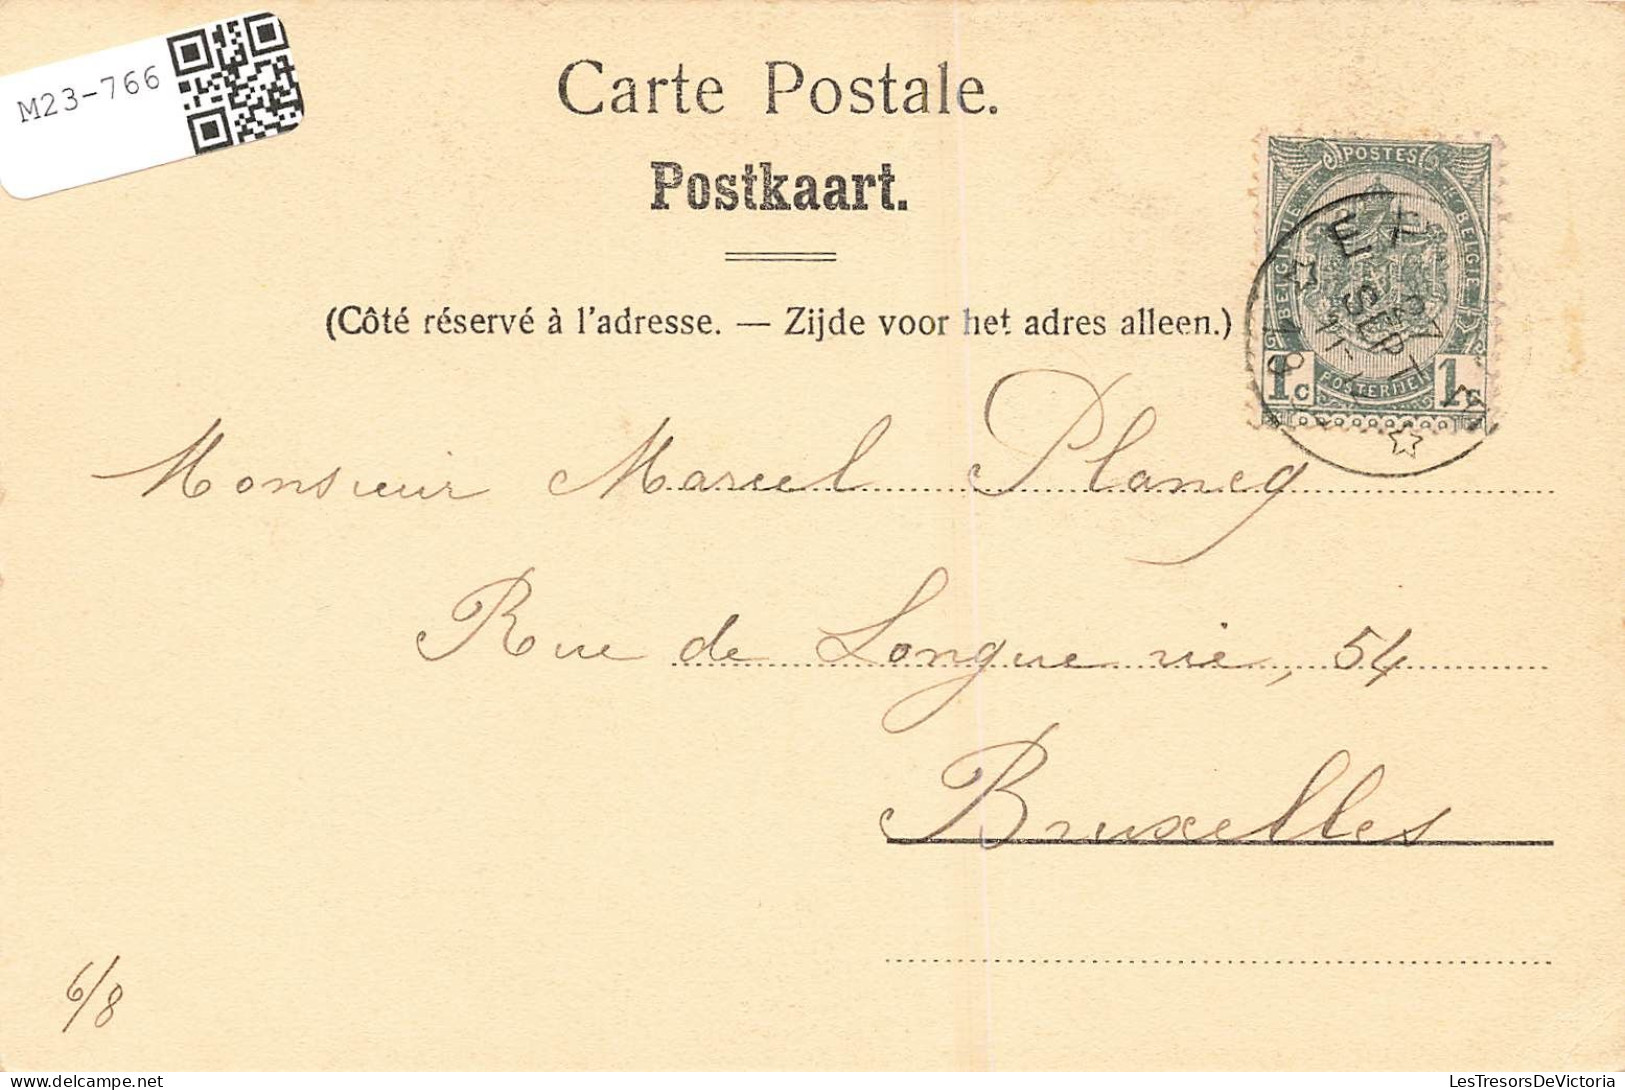 M23-766
Carte Postale.
Postkaart.
(Côté réservé à l'adresse. — Zijde voor het adres alleen.)
POSTES
BELGIË BELGIQUE
POSTERIJEN
1c 1c
SEPT
Monsieur Marcel Plancq
Rue de Longue vie, 54
Bruxelles
6/8
LesTresorsDeVictoria